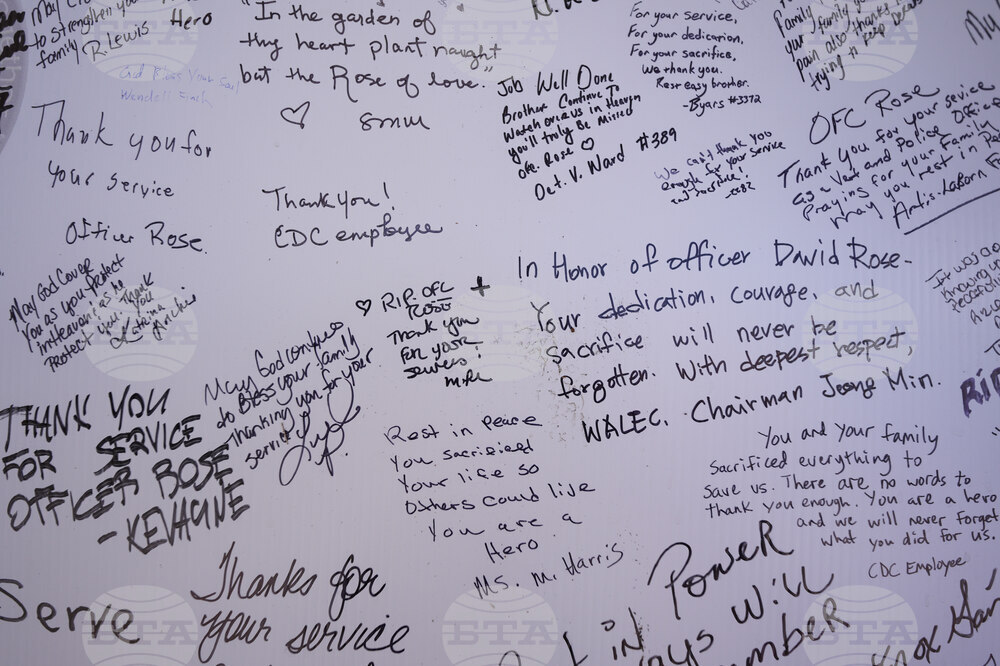 to strengthen your
family R. Lewis
Hero
God Bless Your Soul
"In the garden of
thy heart plant naught
but the Rose of love."
♡ smm
For your service,
For your dedication,
For your sacrifice,
We thank you.
Rest easy brother.
-Byars #3372
family
your family
pain also thanks
trying to keep
My
Job Well Done
Brother Continue To
Watch over us in Heaven
You'll truly Be Missed
Ofc. Rose ♡
Oct. V. Ward #389
We can't thank you
enough for your service
and sacrifice!
OFC Rose
Thank you for your service
as a Vet and Police Officer
Praying for your Family
may you rest in
Thank you for
your service
Officer Rose
Thank you!
CDC employee
May God Cover
You as you Protect
in Heaven as he
Protect you. Thank
you
Katrina
In Honor of officer David Rose-
Your dedication, courage, and
sacrifice will never be
forgotten. With deepest respect,
WALEC. Chairman Jeong Min.
It was a
♡ R.I.P. OFC
Ross
Thank you
For your
service!
May God continue
to Bless your family
Thanking you for your
service
THANK YOU
FOR SERVICE
OFFICER BOSE
- KEVAUNE
Rest in Peace
You sacrificed
Your life so
Others could live
You are a
Hero.
Ms. M. Harris
RIP
You and your family
Sacrificed everything to
save us. There are no words to
thank you enough. You are a hero
and we will never forget
what you did for us.
CDC Employee
Serve
Thanks for
your service
in POWER
Will
БТА
БТА
БТА
БТА